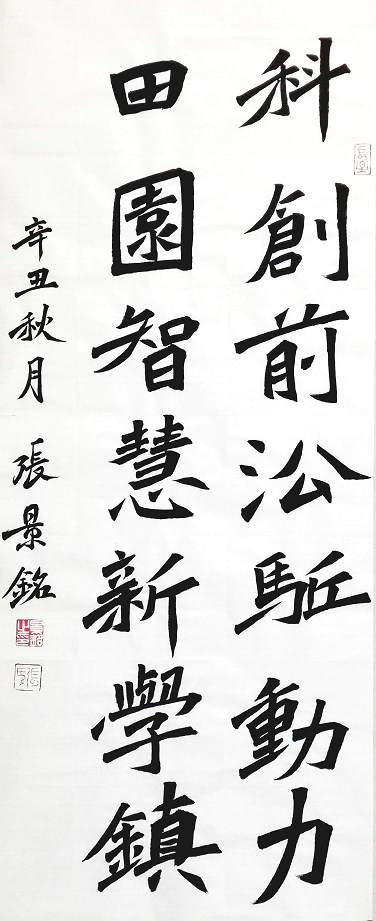 科創前㳂駈動力
田園智慧新學鎮
辛丑秋月 張景銘